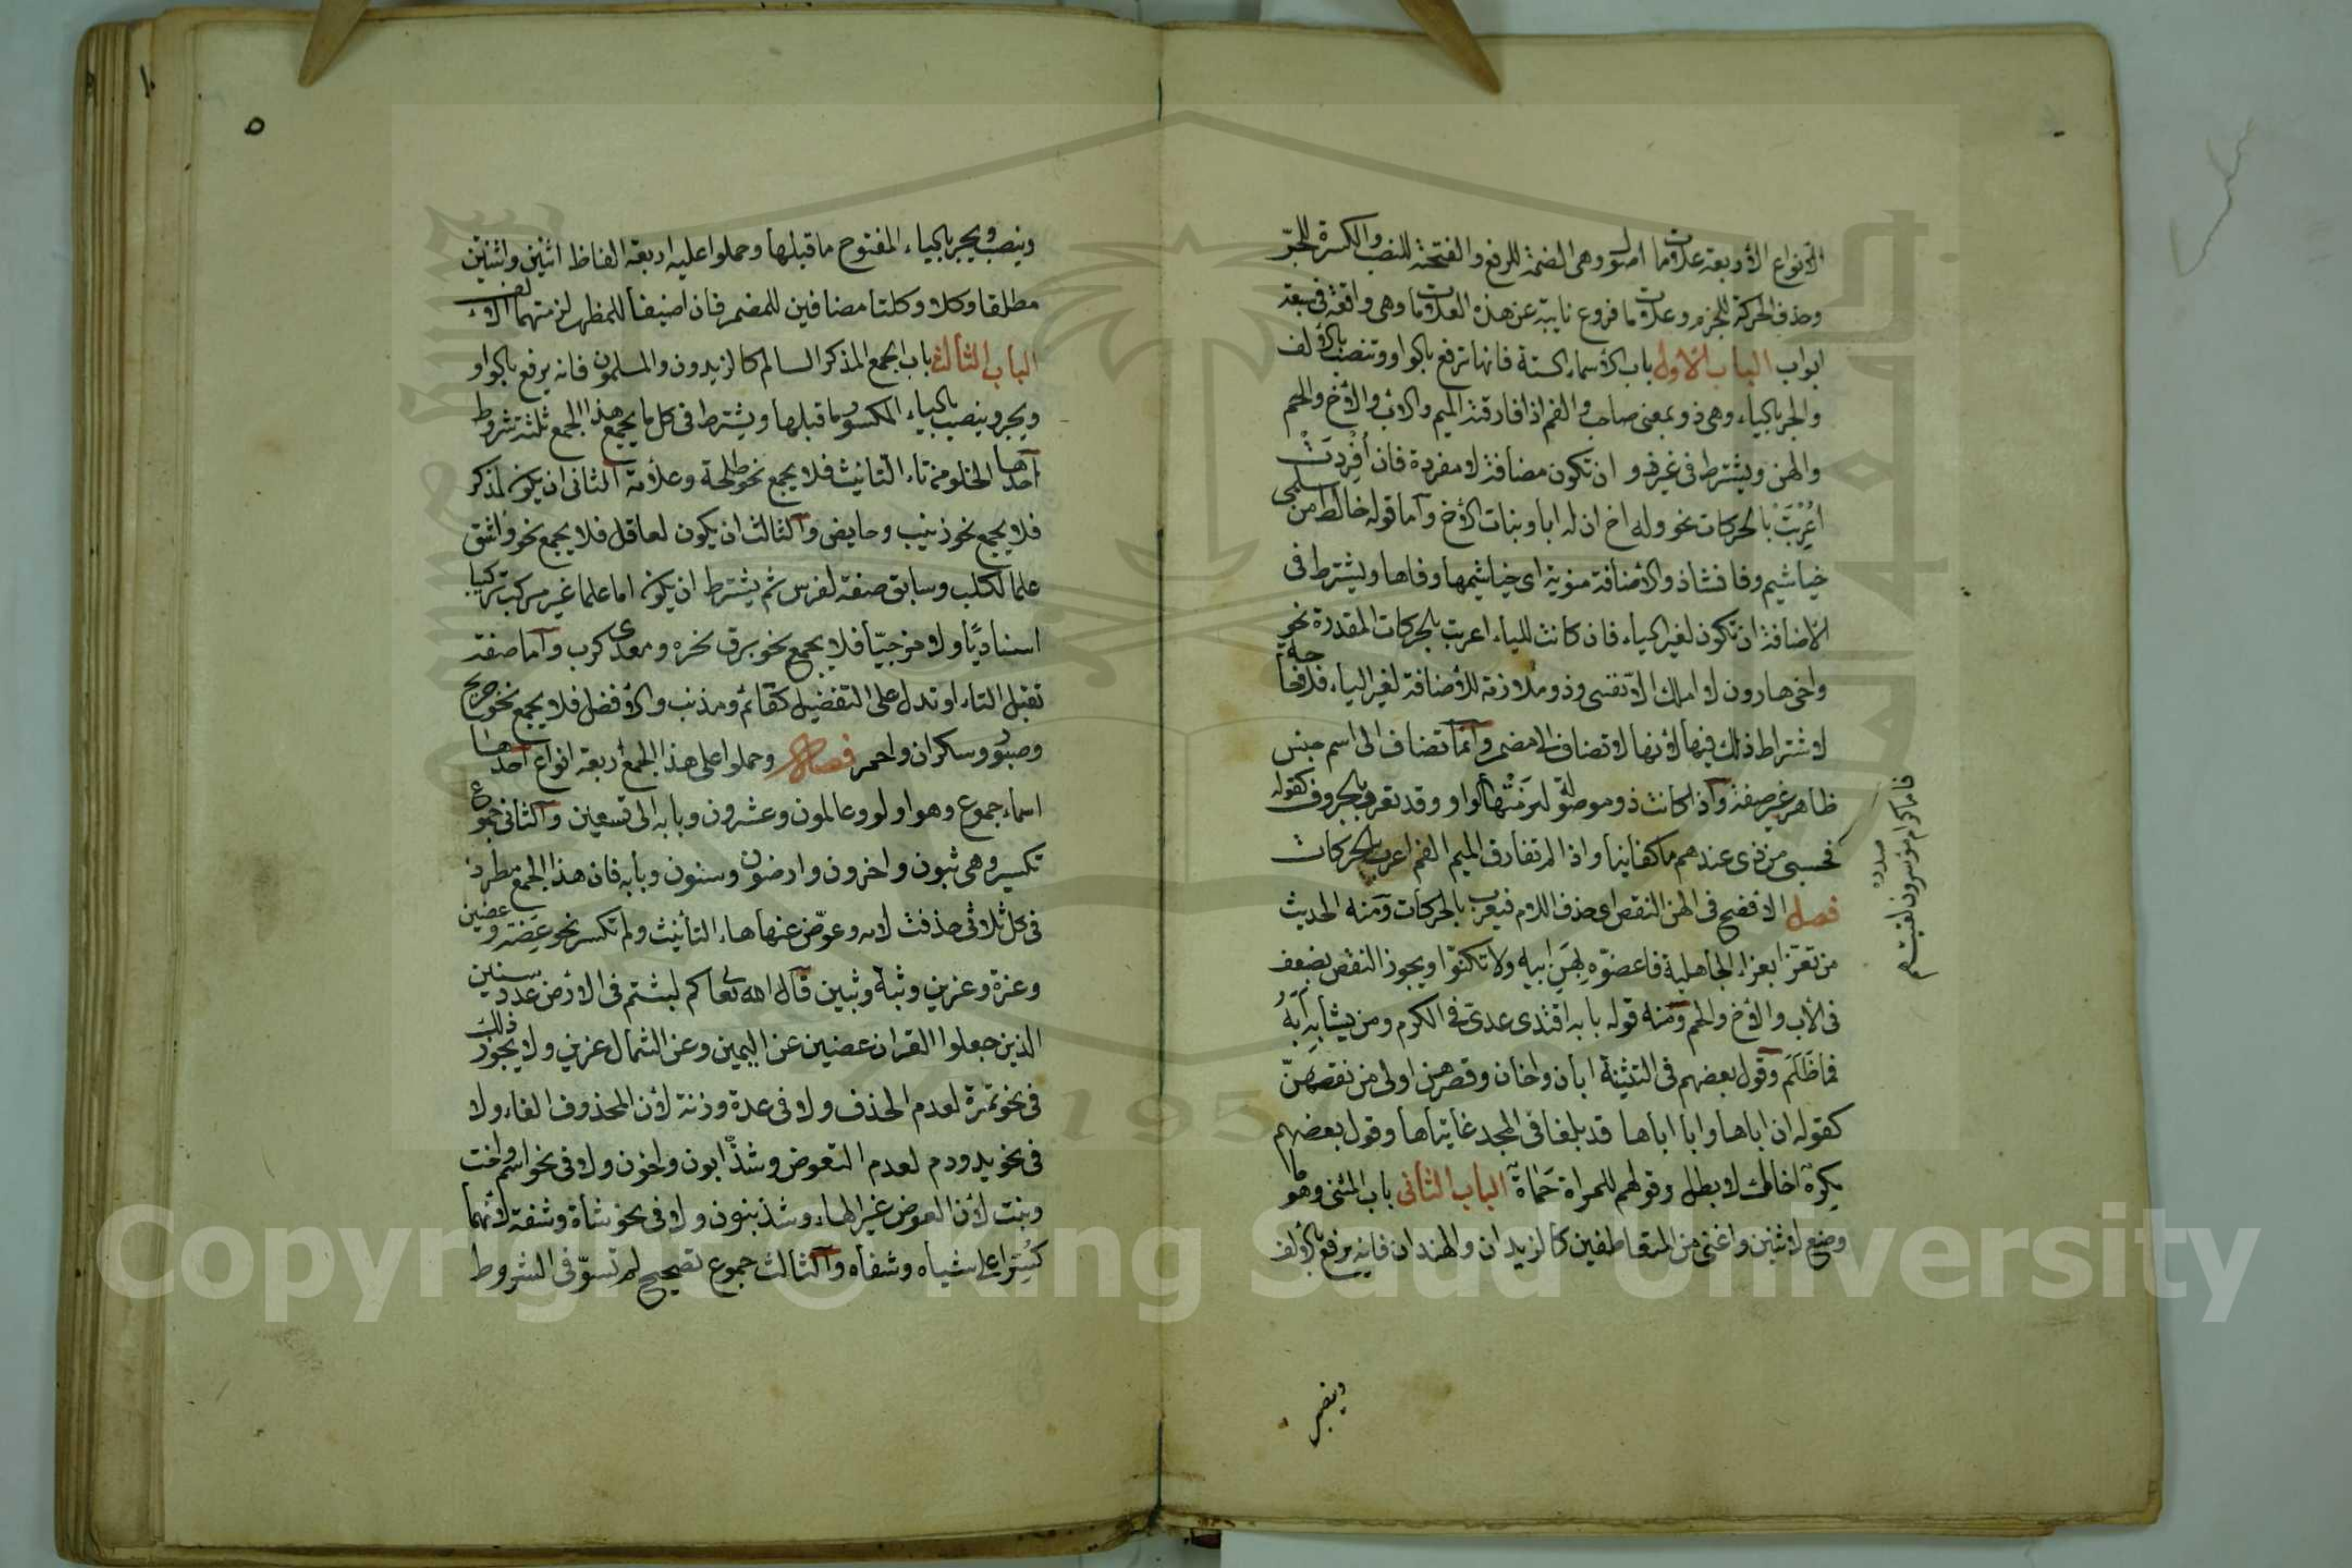 الأنواع الأربعة علامات اصول وهى الضمة للرفع والفتحة للنصب والكسرة للجرّ
وحذف الحركة للجزم وعلامات فروع نايبة عن هذه العلامات وهى واقعة فى سبعة
ابواب الباب الاول باب الأسماء الستة فانها ترفع بالواو وتنصب بالألف
والجر بالياء وهى ذو بمعنى صاحب والفم اذا فارقته الميم والاب والأخ والحم
والهن ويشترط فى غير ذو ان تكون مضافة لا مفردة فان أُفْرِدَتْ
أُعْرِبَتْ بالحركات نحو وله اخ ان له ابا وبنات الأخ وآما قوله خالط من سلمى
خياشيم وفا فشاذ والأضافة منوية اى خياشيمها وفاها ويشترط فى
الاضافة ان تكون لغير الياء فان كانت للياء اعربت بالحركات المقدرة نحو
واخى هارون لا املك الاّ نفسى وذو ملازمة للأضافة لغير الياء فلا حاجة
لاشتراط ذلك فيها لأنها لا تضاف الى مضمر وآنما تضاف الى اسم جنس
ظاهر غير صفة وآذا كانت ذو موصولة لزمتها الواو وقد تعرب بالحروف كقوله
فحسبى من ذى عندهم ما كفانيا واذا لم تفارق الميم الفم اعرب بالحركات
فصل الافصح فى الهن النقص اى حذف اللام فيعرب بالحركات ومنه الحديث
من تعزّا بعزاء الجاهلية فاعضوّه بِهَنِ ابيه ولا تكنّوا ويجوز النقص بضعف
فى الأب والأخ والحم ومنه قوله بابه اقتدى عدىّ فى الكرم ومن يشابه أبَهُ
فما ظَلَم وقول بعضهم فى التثنية ابان واخان وقصرهن اولى من نقصهنّ
كقوله ان اباها وابا اباها قد بلغا فى المجد غايتاها وقول بعضهم
مكرهٌ اخاك لا بطل وقولهم للمراة حَماة الباب الثانى باب المثنى وهو ما
وضع لاثنين واغنى عن المتعاطفين كالزيدان والهندان فانه يرفع بالألف
صدره
فاما كرام موسرون لقيتهم
وينصب
٥
وينصب ويجر بالياء المفتوح ما قبلها وحملوا عليه اربعة الفاظ اثنين واثنتين
مطلقا وكلا وكلتا مضافين للمضمر فان اضيفا للمظهر لزمتهما الالف
الباب الثالث باب الجمع المذكر السالم كالزيدون والمسلمون فانه يرفع بالواو
ويجر وينصب بالياء المكسور ما قبلها ويشترط فى كل ما يجمع هذا الجمع ثلثة شروط
آحدها الخلو من تاء التانيث فلا يجمع نحو طلحة وعلامة آلثانى ان يكون لمذكر
فلا يجمع نحو زينب وحايض وآلثالث ان يكون لعاقل فلا يجمع نحو واشق
علما لكلب وسابق صفة لفرس ثم يشترط ان يكون اما علما غير مركب تركيبا
اسناديًّا ولا مزجيّا فلا يجمع نحو برق نحره ومعدى كرب وآما صفة
تقبل التاء او تدل على التفضيل كقائم ومذنب والأفضل فلا يجمع نحو جريح
وصبور وسكران واحمر فصل وحملوا على هذا الجمع أربعة انواع آحدها
اسماء جموع وهو اولو وعالمون وعشرون وبابه الى تسعين وآلثانى جموع
تكسير وهى بنون واخرون وارضون وسنون وبابه فان هذا الجمع مطرد
فى كل ثلاثى حذفت لامه وعوّض عنها هاء التأنيث ولم تكسر نحو عِضَة وعضين
وعزة وعزين وثبة وثبين قآل الله تعا كم لبثتم فى الأرض عدد سنين
الذين جعلوا القران عضين عن اليمين وعن الشمال عزين ولا يجوز ذلك
فى نحو تمرة لعدم الحذف ولا فى عدة وزنة لأن المحذوف الفاء ولا
فى نحو يد ودم لعدم التعوض وشذّ ابون واخون ولا فى نحو اسم واخت
وبنت لأن العوض غير الهاء وشذ بنون ولا فى نحو شاة وشفة لأنهما
كُسّرا على شياه وشفاه وآلثالث جموع تصحيح لم تستوّف الشروط